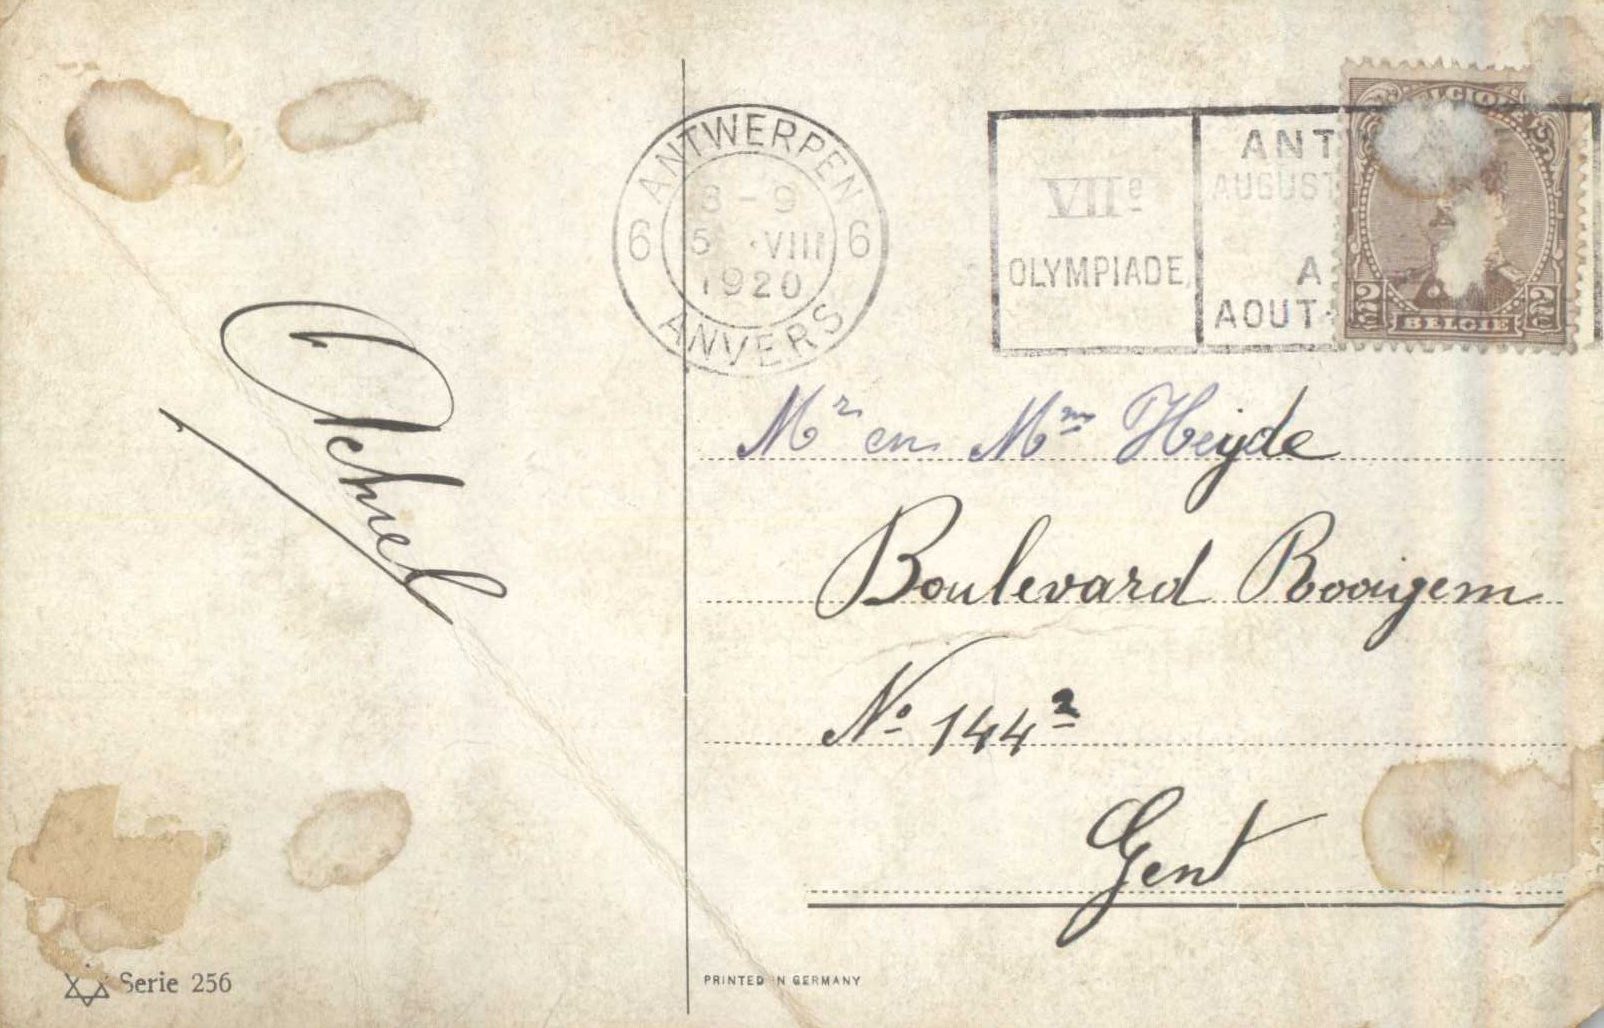 ANTWERPEN
6 8 - 9 6
5 VIII
1920
ANVERS
VIIe
OLYMPIADE
ANT
AUGUST
A
AOUT-
2c BELGIE 2c
Mr en Mme Heyde
Boulevard Rooigem
No 144²
Gent
Achiel
Serie 256
PRINTED IN GERMANY